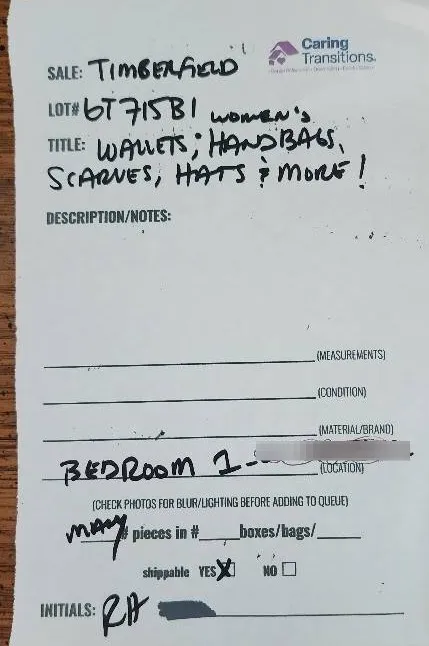 Caring
Transitions.
SALE: TIMBERFIELD
LOT# 6T715B1
WOMEN'S
TITLE: WALLETS; HANDBAGS,
SCARVES, HATS & MORE!
DESCRIPTION/NOTES:
(MEASUREMENTS)
(CONDITION)
(MATERIAL/BRAND)
BEDROOM 1- (LOCATION)
(CHECK PHOTOS FOR BLUR/LIGHTING BEFORE ADDING TO QUEUE)
MANY # pieces in #____boxes/bags/____
shippable YES☒ NO☐
INITIALS: RA